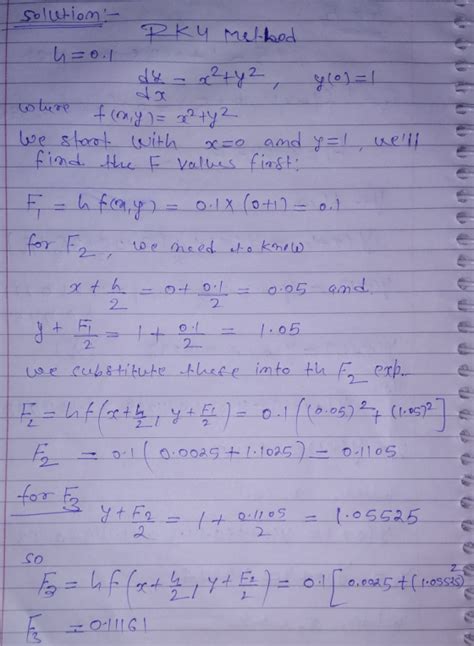 Solution:-
RK4 Method
h=0.1
dy/dx = x²+y², y(0)=1
where f(x,y)= x²+y²
We start with x=0 and y=1, we'll
find the F values first:
F₁ = hf(x,y) = 0.1×(0+1) = 0.1
for F₂, we need to know
x + h/2 = 0 + 0.1/2 = 0.05 and
y + F₁/2 = 1 + 0.1/2 = 1.05
we substitute these into th F₂ exp.
F₂ = hf(x+h/2, y+F₁/2) = 0.1((0.05)²+(1.05)²]
F₂ = 0.1(0.0025+1.1025) = 0.1105
for F₃
y + F₂/2 = 1 + 0.1105/2 = 1.05525
so
F₃ = hf(x+h/2, y+F₂/2) = 0.1[0.0025+(1.05525)²
F₃ = 0.11161